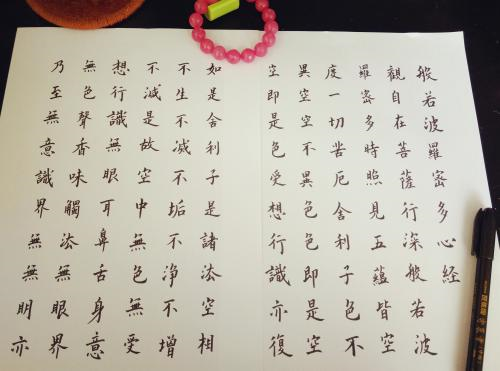 般若波羅密多心経
觀自在菩薩行深般若波
羅密多時照見五蘊皆空
度一切苦厄舍利子色不
異空空不異色色即是空
空即是色受想行識亦復
如是舍利子是諸法空相
不生不滅不垢不淨不增
不減是故空中無色無受
想行識無眼耳鼻舌身意
無色聲香味觸法無眼界
乃至無意識界無無明亦